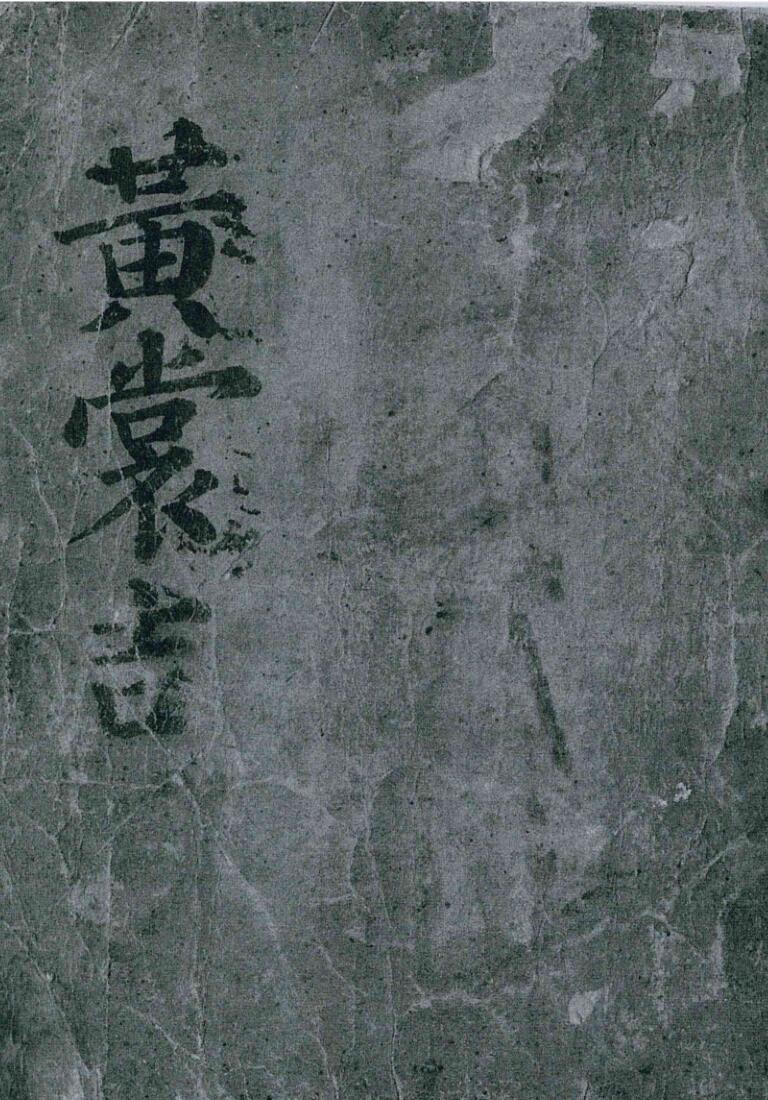 黃裳吉